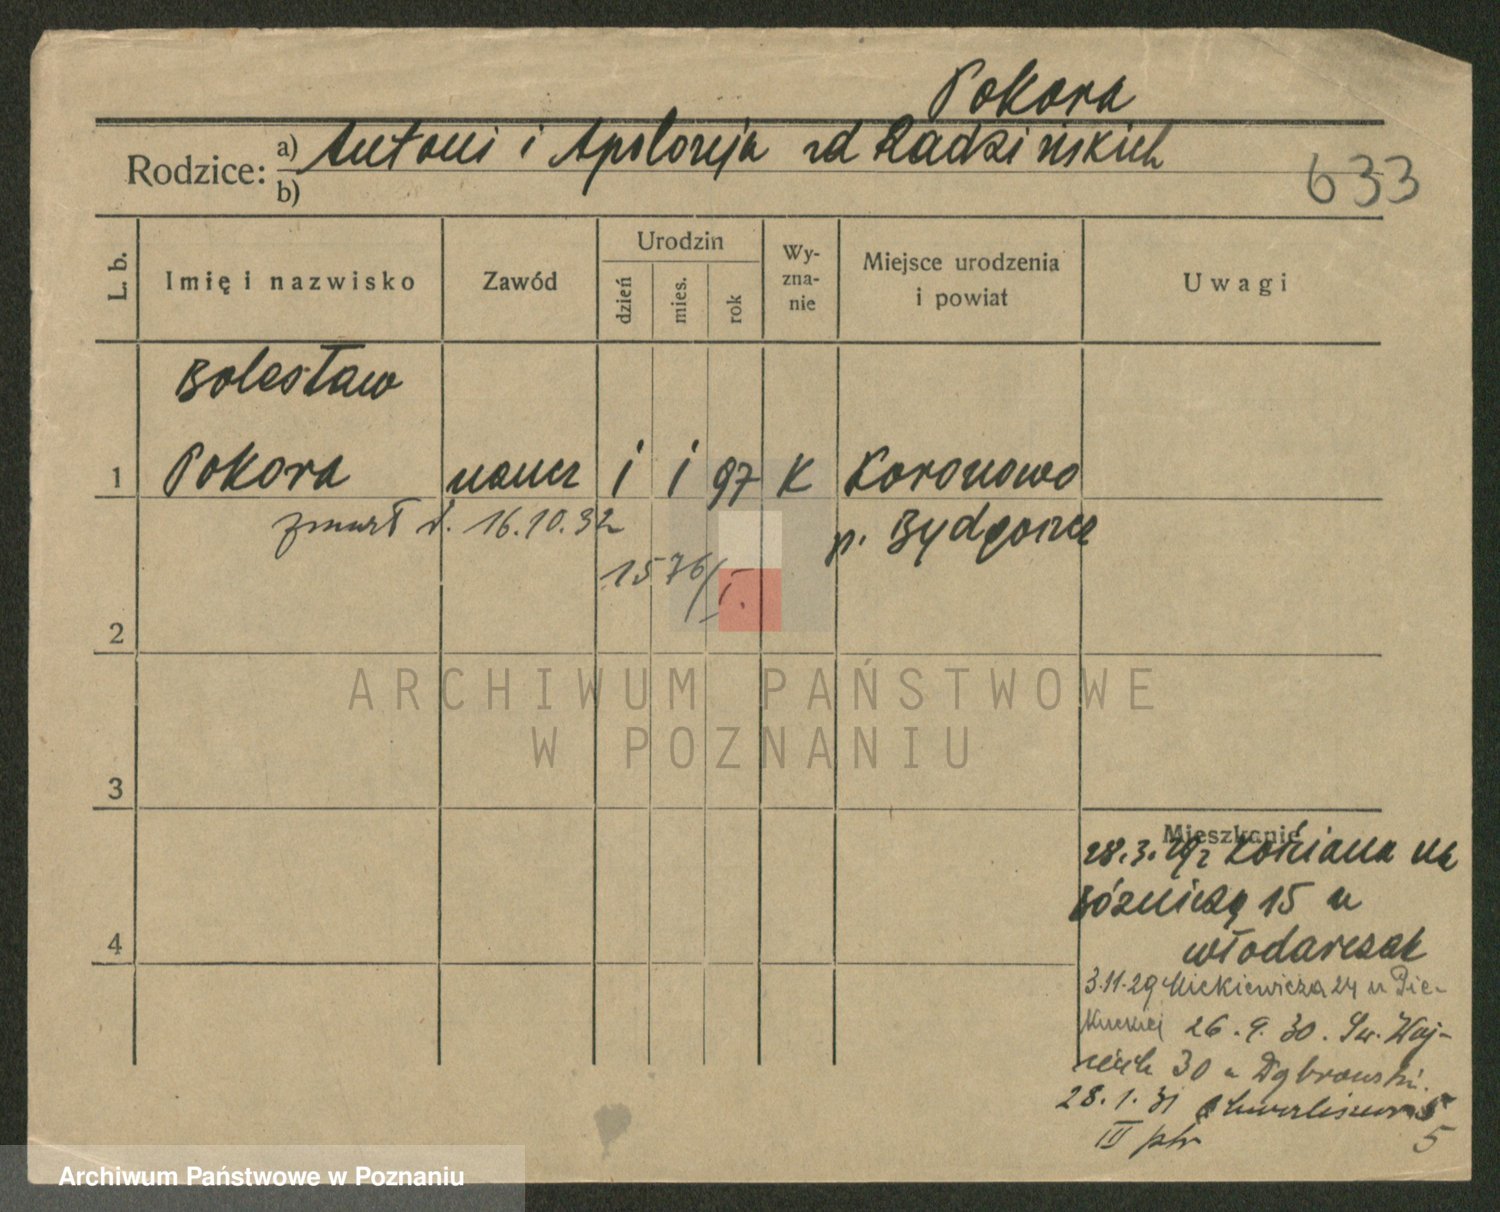 Pokora
Rodzice: a) Antoni i Apolonja z d Radzińskich
b)
633
L. b.
Imię i nazwisko
Zawód
Urodzin
dzień
mies.
rok
Wy-
zna-
nie
Miejsce urodzenia
i powiat
Uwagi
Bolesław
1 Pokora naucz 1 1 97 K Koronowo
zmarł d. 16.10.32
p. Bydgoszcz
1576/I.
2
ARCHIWUM PAŃSTWOWE
W POZNANIU
3
Mieszkanie
28.3.29 z Kościana na
Bóżniczą 15 u
4
Włodarczak
3.11.29 Mickiewicza 24 u Pie-
26.9.30. Św. Woj-
ciech 30 u Dąbrowski.
28.1.31 Chwaliszewo 5
III ptr 5
Archiwum Państwowe w Poznaniu